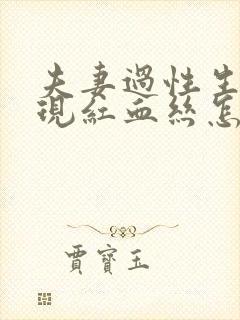 夫妻過性生
現紅血絲怎
賈寶玉